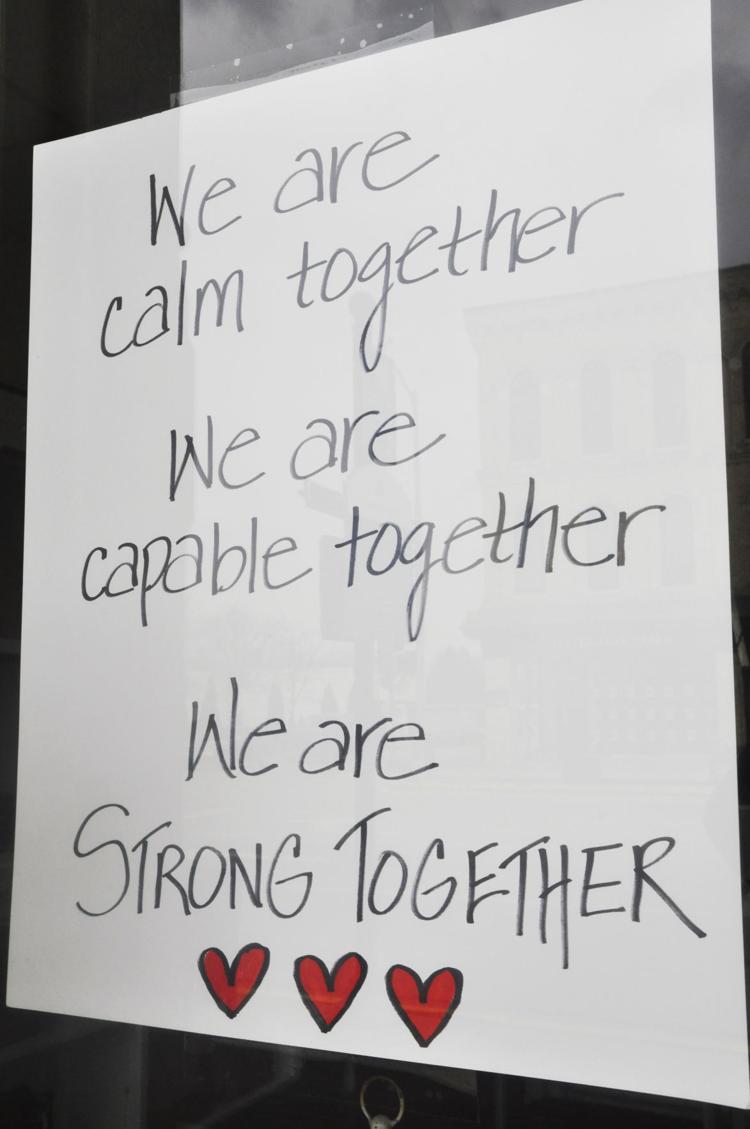 We are
calm together
We are
capable together
We are
STRONG TOGETHER